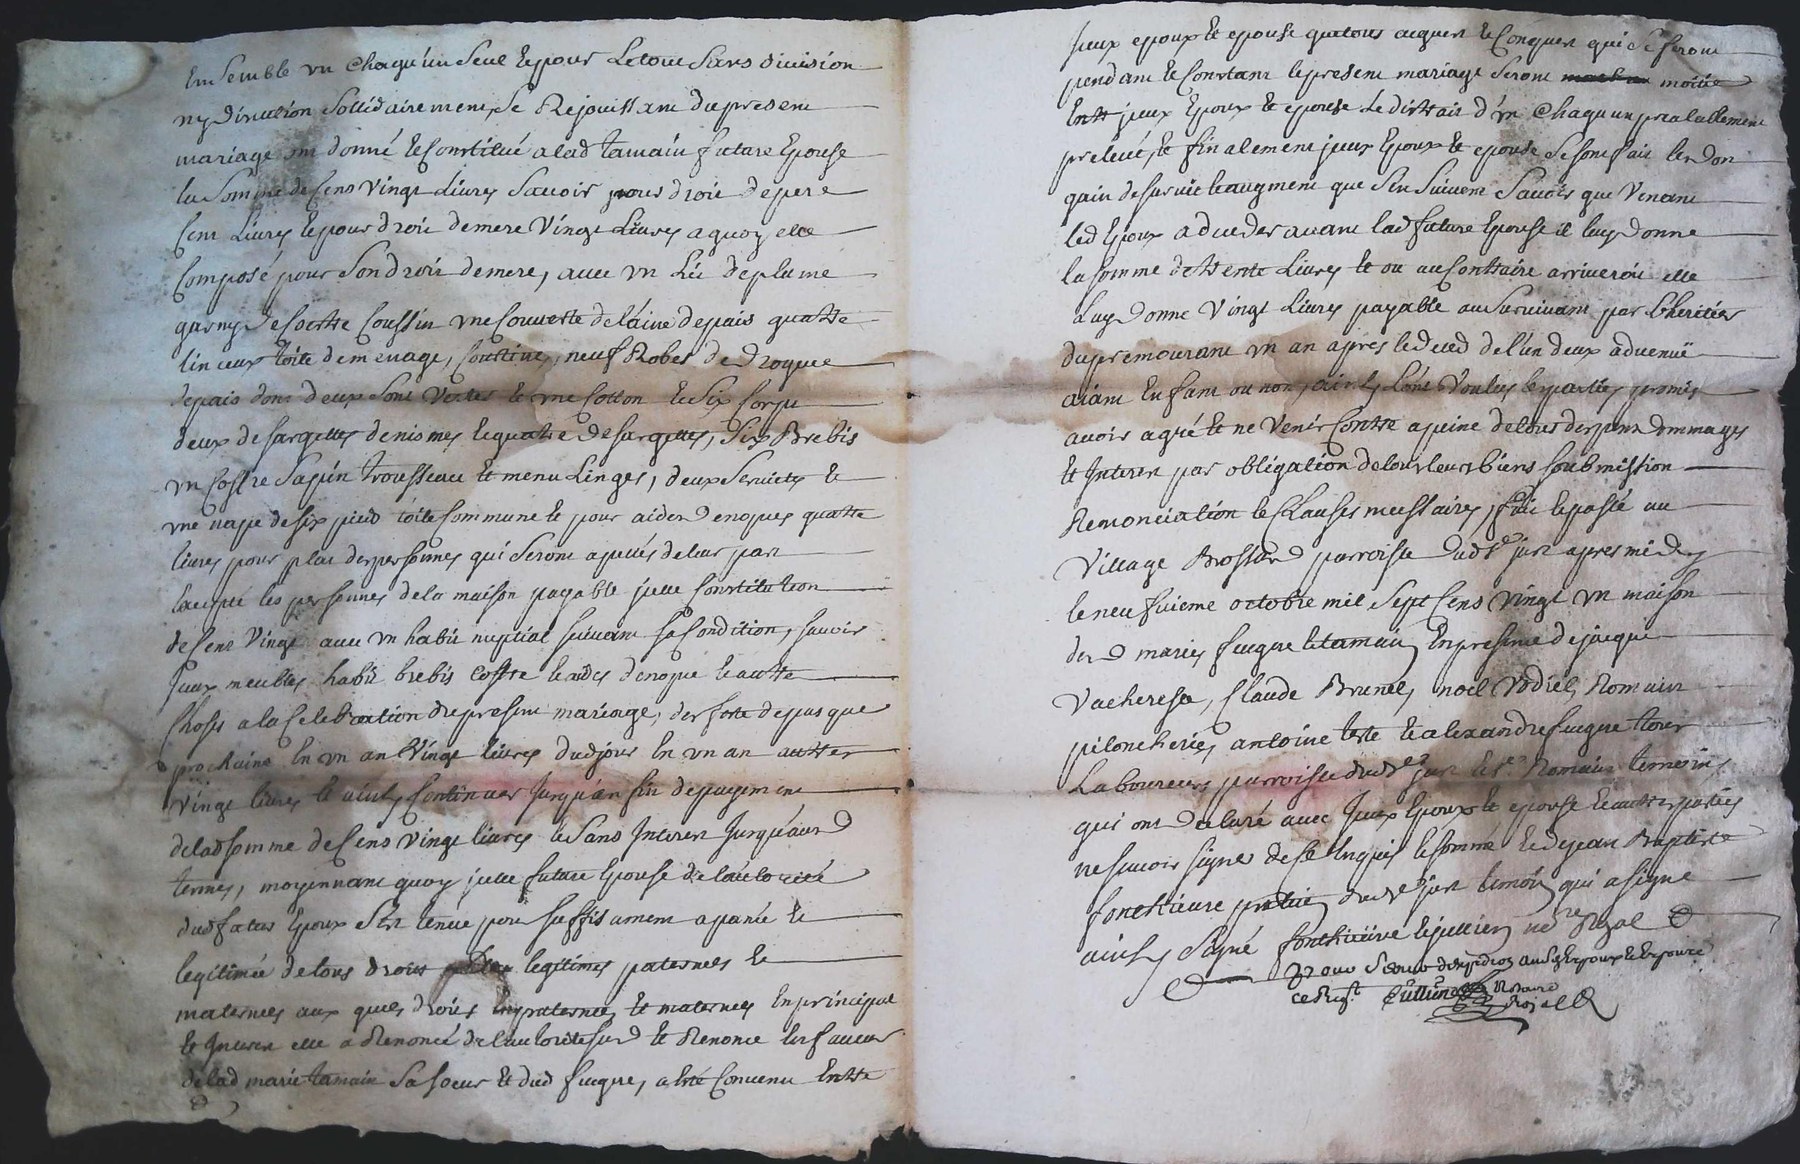 Ensemble un chaqu'un seul et pour le tout sans division
ny diraction sollidairement, se Rejouissant du present
mariage ont donné et Constitué a lad tamain future Epouse
la somme de Cens vingt Livres savoir pour droit de pere
Cent Livres et pour droit de mere vingt Livres a quoy elle
Composé pour son droit de mere, avec un Lit de plume
garny de Coittre Coussin une Couverte de laine de pais quattre
linceux toile de menage, Courtine, neuf Robes de drognet
de pais dont deux sont vertes et une Cotton et six Corps
deux de sargettes de nismes et quatre de sargettes, six Brebis
un Coffre sapin trousseau et menu Linges, deux serviete et
une nape de six pied toile Commune et pour aider de nopces quattre
livres pour plat des personnes qui seront apellés de leur part
Excepté les personnes de la maison payable jcelle Constitution
de Cens vingt avec un habit nuptial suivant sa Condition, savoir
jceux meubles habit brebis Coffre et aides de nopce et autre
Choses a la Celebration du present mariage, des feste de pasque
prochaine En un an vingt livres dud jour En un an autres
vingt livres et ainsy Continuer jusqu'a En fin de payement
de lad somme de Cens vingt livres et sans Interest jusqu'aud
termes, moyennant quoy jcelle future Epouse de l'autorité
dud futur Epoux s'est tenue pour suffisament apanée et
legitimée de tous droits legitimes paternels et
maternels aux quels droits paternels et maternels En principal
et Interest elle a Renoncé de l'autorité susd et Renonce En faveur
de lad marie tamain sa soeur et dud fuegue, a été Convenu Entre
jceux epoux et epouse que tous acquest et Conquest qui se feront
pendant et Constant le present mariage seront moitié
Entre jceux Epoux et epouse le distrait d'un Chaqu'un prealablement
prelevé, et finalement jceux Epoux et epouse se sont fait le don
gain de survie et augment que s'en suivent savoir que venant
led Epoux a deceder avant lad future Epouse il luy donne
la somme de trente Livres et ou au Contraire arriveroit elle
Luy donne vingt Livres payable au survivant par l'heritier
du premourant un an apres le deced de l'un deux advenüe
aiant Enfant ou non, ainsy l'ont voulus les parties promis
avoir agréé et ne venir Contre a peine de tous depens dommages
et Interest par obligation de tous leurs biens soubmission
Renonciation et Clauses necessaires, fait et passé au
village Brossard parroisse dud St just apres midy
le neufvieme octobre mil sept Cens vingt un maison
desd maries fuegue et tamain En presence de jacque
vacheresse, Claude Brunel, noel vodiel, Romain
piloncherie, antoine teste et alexandre fuegue tous
Laboureurs parroisse dud St just et St Romain temoins
qui ont declaré avec jceux Epoux et epouse et autres parties
ne savoir signer de Ce Enquis et sommé Et de jean Baptiste
fonthieure praticien dud St just temoin qui a signé
ainsy signé fonthieüre et jullien nre Royal
Pour servir d'expedition ausd Epoux et Epouse
Jullien Notaire
Royal